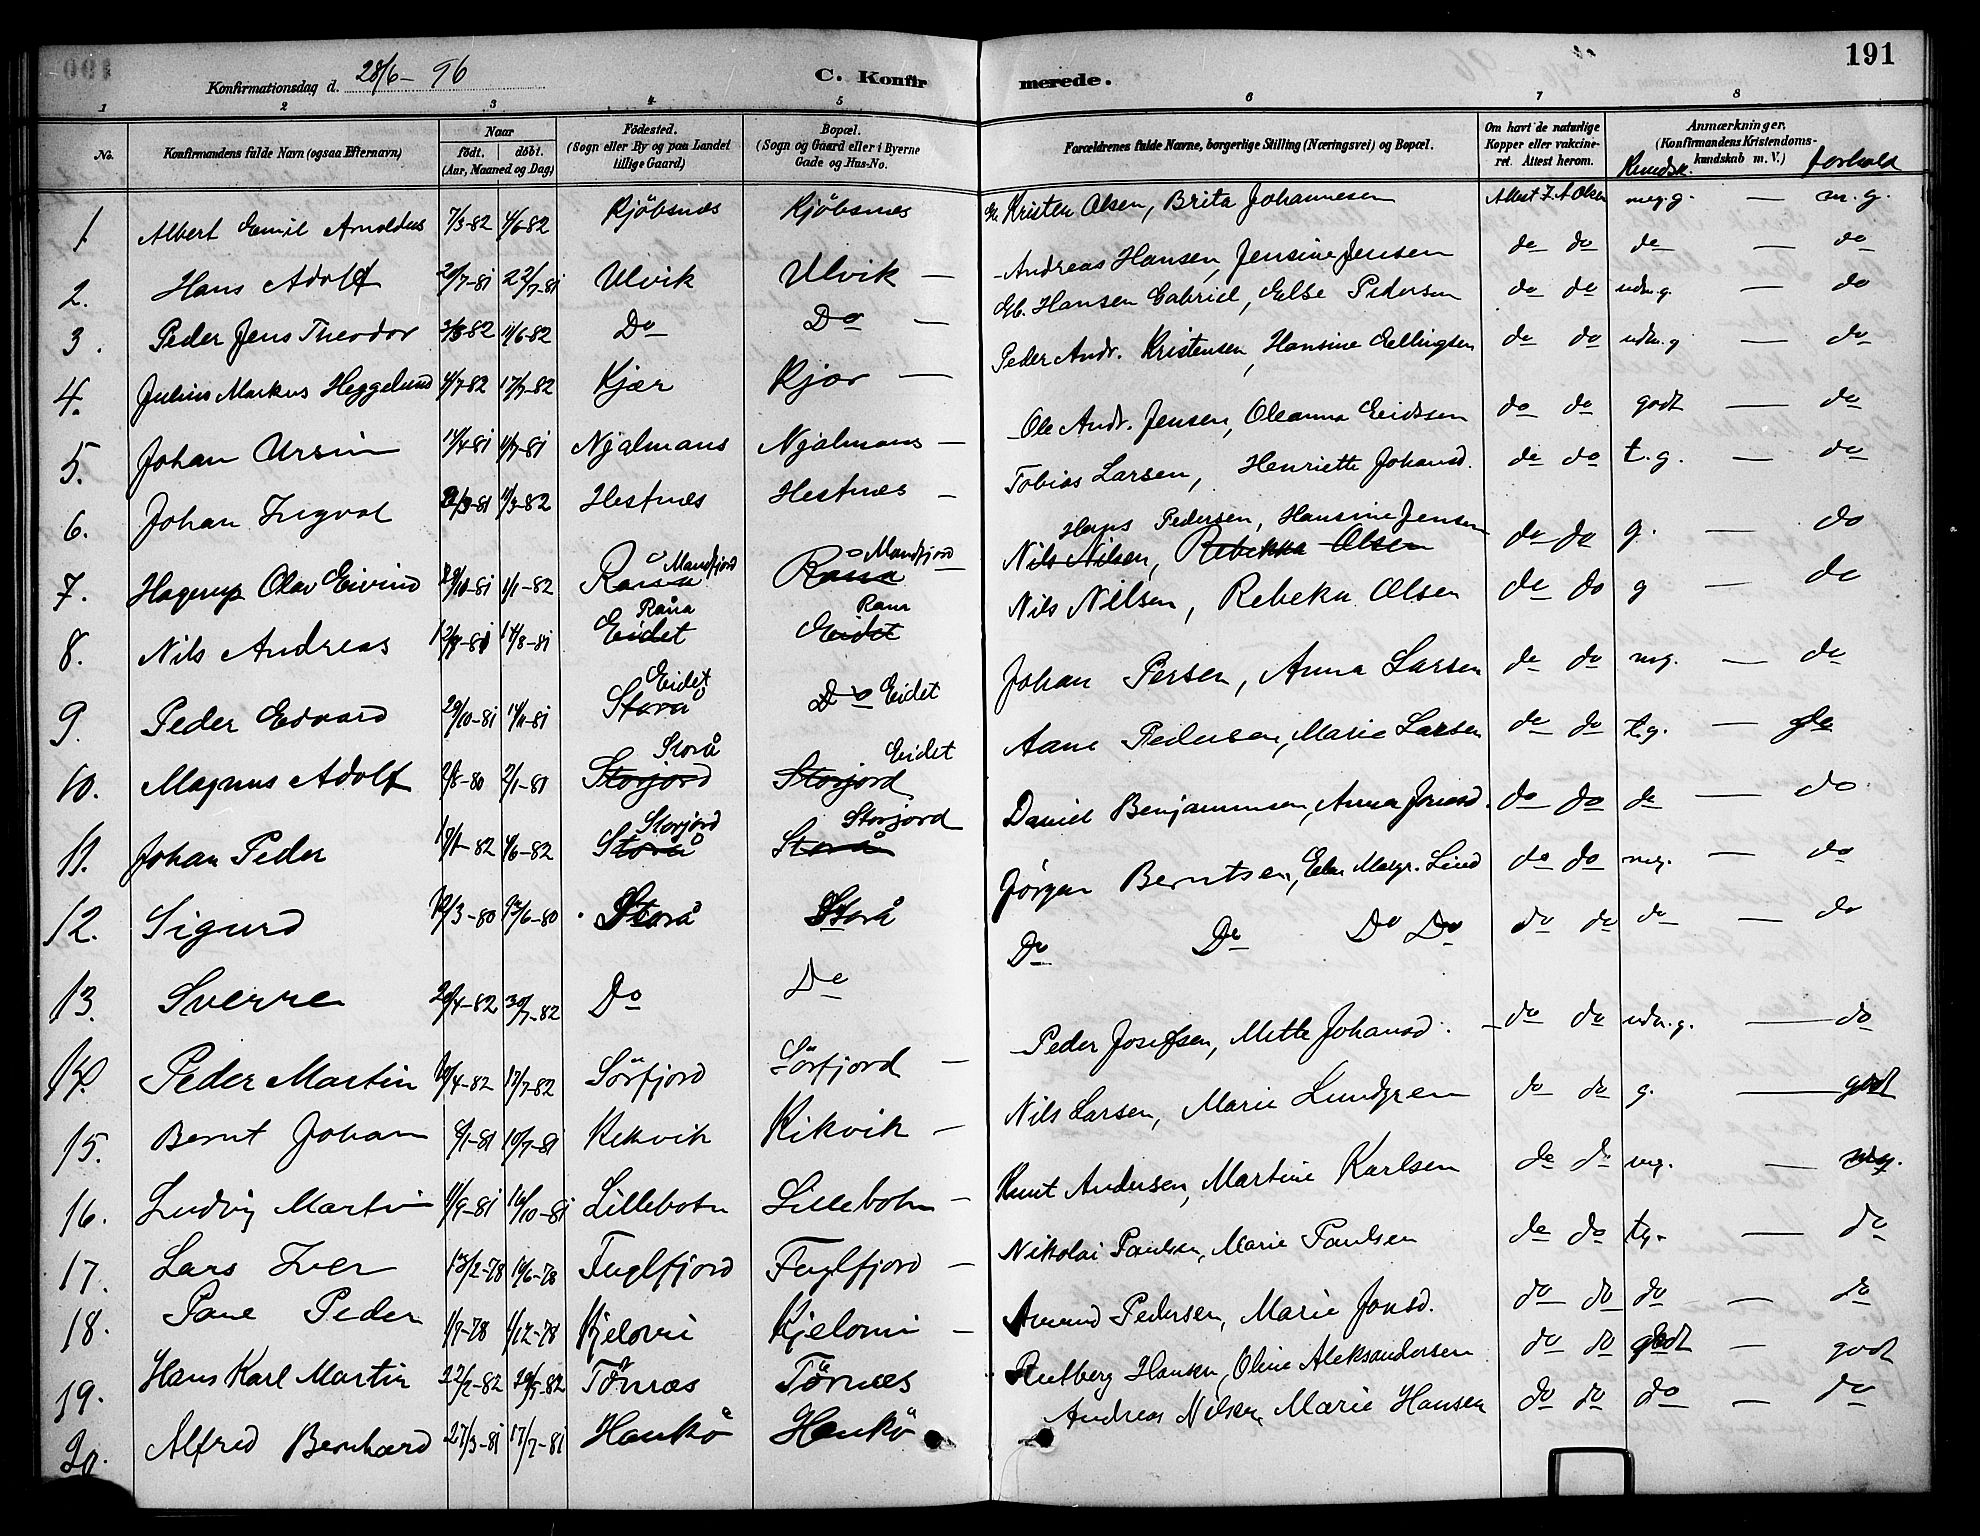 191
Konfirmationsdag d. 28/6 - 96 C. Konfirmerede.
1 2 3 4 5 6 7 8
No. Konfirmandens fulde Navn (ogsaa Efternavn) Naar født. døbt. (Aar, Maaned og Dag) Fødested. (Sogn eller By og paa Landet tillige Gaard) Bopæl. (Sogn og Gaard eller i Byerne Gade og Hus-No. Forældrenes fulde Navne, borgerlige Stilling (Næringsvei) og Bopæl. Om havt de naturlige Kopper eller vakcineret. Attest herom. Anmærkninger, (Konfirmandens Kristendomskundskab m. V.) Kundsk. forhold
1. Albert Emil Arnoldus 7/3-82 4/6-82 Kjöbsnes Kjöbsnes Kristen Olsen, Brita Johannesen Attest Z. A Olsen meg.g. — m.g.
2. Hans Adolf 20/7-81 22/7-81 Ulvik Ulvik — Andreas Hansen, Jensine Jensen do do do — do
3. Peder Jens Theodor 3/3-82 11/6-82 Do Do — Eb. Hansen Gabriel, Else Pedersen do do udm.g. — do
4. Julius Markus Heggelund 4/7-82 17/7-82 Kjær Kjær — Peder Andr. Kristensen, Hansine Ellingsen do do udm.g — do
5. Johan Ursin 14/4-81 4/7-81 Njalmans Njalmans — Ole Andr. Jensen, Oleanna Eidssen do do godt — do
6. Johan Ingval 11/3-82 Hestnes Hestnes — Tobias Larsen, Henriette Johansd. do do t.g. — do
7. Hagerup Olav Eivind 1/1-82 Råna Mandfjord Råna Mandfjord — Nils Nilsen, Rebekka Olsen Hans Pedersen, Hansine Jensen do do g. — do
8. Nils Andreas 14/8-81 Eidet Råna Eidet Rana Nils Nilsen, Rebeka Olsen do do g — do
9. Peder Edvard 29/10-81 14/11-81 Storå Eidet Do Eidet Johan Persen, Anna Larsen do do mg. — do
10. Magnus Adolf 2/8-80 2/1-81 Storjord Storå Storjord Eidet Aane Pedersen, Marie Larsen do do tg. — do
11. Johan Peder 4/6-82 Storå Storjord Storå Storjord Daniel Benjaminsen, Anna Jonasd. do do do — do
12. Sigurd 23/6-80 Storå Storå Jörgen Berntsen, Elen Margr. Lind do do mg. — do
13. Sverre 20/4-82 30/7-82 Do Do Do Do Do Do do do do — do
14. Peder Martin 17/7-82 Sörfjord Sörfjord — Peder Josefsen, Mette Johansd. — do do udm.g. — do
15. Bernt Johan 10/7-81 Kikvik Kikvik — Nils Larsen, Marie Lundgren do do g. — godt
16. Ludvig Martin 11/9-81 16/10-81 Lillebotn Lillebotn — Knut Andersen, Martine Karlsen do do mg. — mg.
17. Lars Iver 13/2-78 10/6-78 Fuglfjord Fuglfjord — Nikolai Paulsen, Marie Paulsen do do tg. — do
18. Paul Peder 1/9-78 1/12-78 Kjelovii Kjelovii — Amund Pedersen, Marie Jonsd. do do do — do
19. Hans Karl Martin 22/2-82 Törnæs Törnæs Rutberg Hansen, Oline Aleksandersen do do godt — godt
20. Alfred Bernhard 27/3-81 17/7-81 Haukö Haukö Andreas Nilsen, Marie Hansen do do do — do